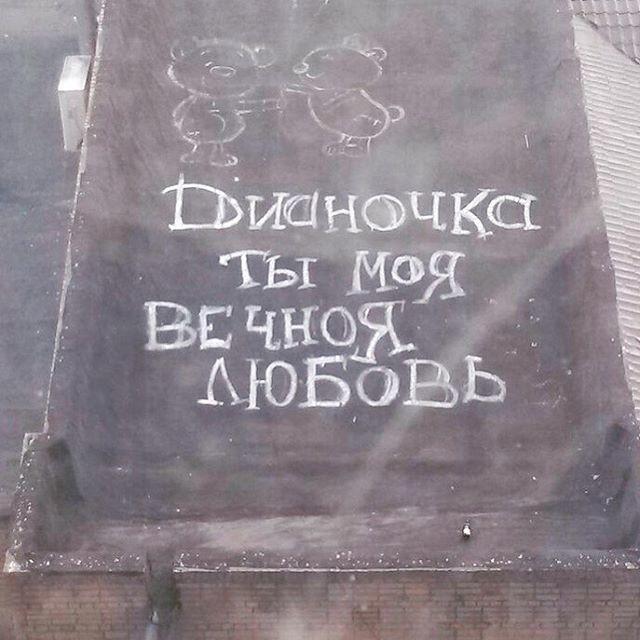 Дианочка
ты моя
вечноя
любовь